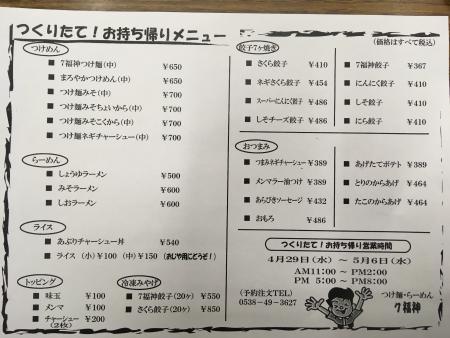 つくりたて！お持ち帰りメニュー
(価格はすべて税込)
つけめん
■ 7福神つけ麺(中) ¥650
■ まろやかつけめん(中) ¥650
■ つけ麺みそ(中) ¥700
■ つけ麺みそちょいから(中) ¥700
■ つけ麺みそこくから(中) ¥700
■ つけ麺ネギチャーシュー(中) ¥700
らーめん
■ しょうゆラーメン ¥500
■ みそラーメン ¥600
■ しおラーメン ¥600
ライス
■ あぶりチャーシュー丼 ¥540
■ ライス (小)¥100 (中)¥150 (おじや用にどうぞ！)
トッピング
■ 味玉 ¥100
■ メンマ ¥100
■ チャーシュー ¥200
(2枚)
冷凍みやげ
■ 7福神餃子(20ヶ) ¥550
■ さくら餃子(20ヶ) ¥850
餃子7ヶ焼き
■ さくら餃子 ¥410
■ ネギさくら餃子 ¥454
■ スーパーにんにく餃子 ¥486
■ しそチーズ餃子 ¥486
■ 7福神餃子 ¥367
■ にんにく餃子 ¥410
■ しそ餃子 ¥410
■ にら餃子 ¥410
おつまみ
■ つまみネギチャーシュー ¥389
■ メンマラー油つけ ¥389
■ あらびきソーセージ ¥432
■ おもろ ¥486
■ あげたてポテト ¥389
■ とりのからあげ ¥464
■ たこのからあげ ¥464
つくりたて！お持ち帰り営業時間
4月29日(水) ～ 5月6日(水)
AM11:00 ～ PM2:00
PM 5:00 ～ PM8:00
(予約注文TEL)
0538-49-3627
つけ麺・らーめん
7福神